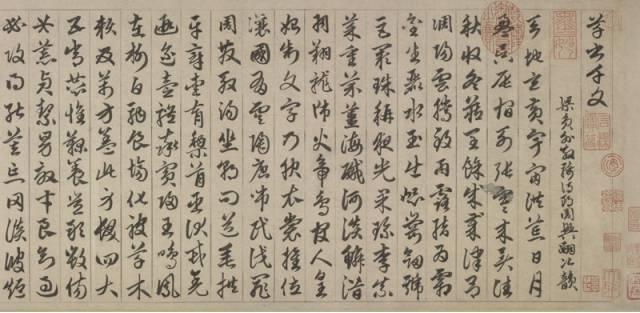 草書千文
梁員外散騎侍郎周興嗣次韻
天地玄黃宇宙洪荒日月
盈昃辰宿列張寒來暑往
秋收冬藏閏餘成歲律呂
調陽雲騰致雨露結為霜
金生麗水玉出崑岡劍號
巨闕珠稱夜光果珍李柰
菜重芥薑海鹹河淡鱗潛
羽翔龍師火帝鳥官人皇
始制文字乃服衣裳推位
讓國有虞陶唐弔民伐罪
周發殷湯坐朝問道垂拱
平章愛育黎首臣伏戎羌
遐邇壹體率賓歸王鳴鳳
在樹白駒食場化被草木
賴及萬方蓋此身髮四大
五常恭惟鞠養豈敢毀傷
女慕貞潔男效才良知過
必改得能莫忘罔談彼短